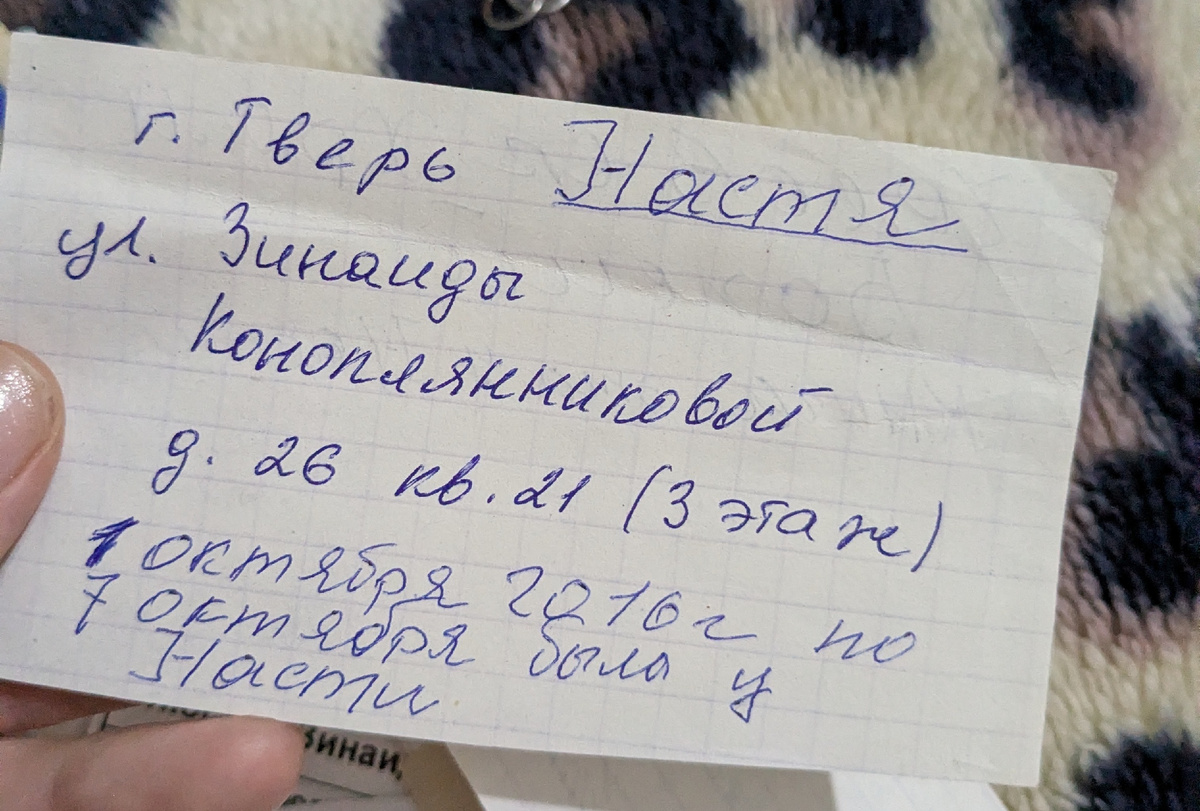 г. Тверь Настя
ул. Зинаиды
Коноплянниковой
д. 26 кв. 21 (3 этаж)
1 октября 2016 г по
7 октября была у
Насти
Зинаи,